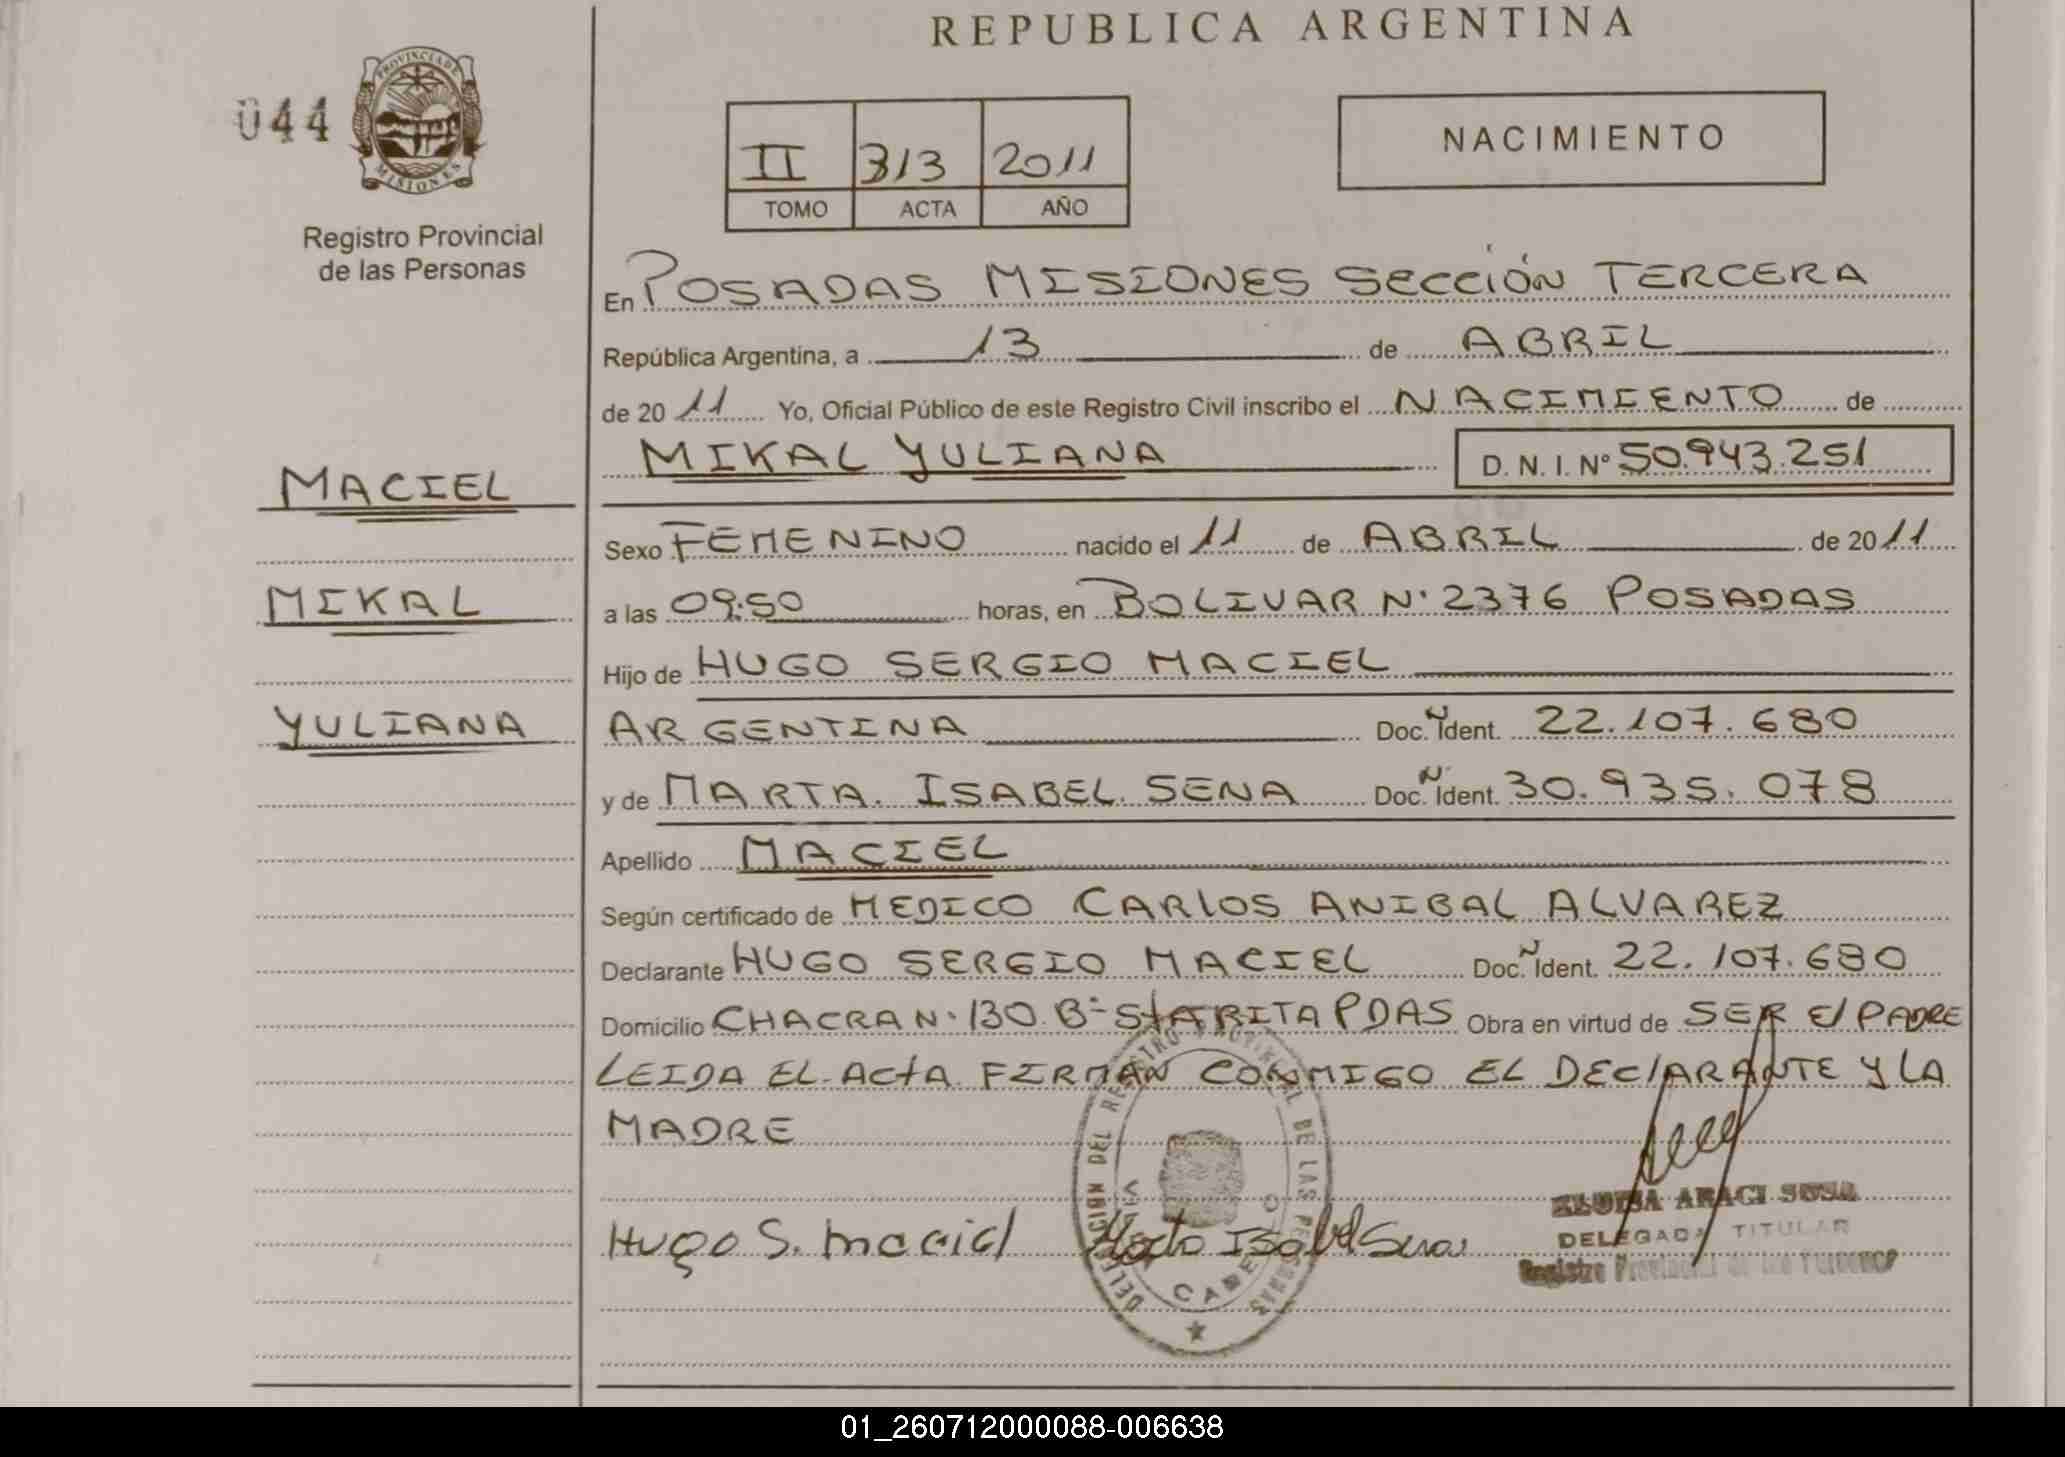 REPUBLICA ARGENTINA
044
PROVINCIA DE
MISIONES
Registro Provincial
de las Personas
II 313 2011
TOMO ACTA AÑO
NACIMIENTO
En POSADAS MISIONES SECCIÓN TERCERA
República Argentina, a 13 de ABRIL
de 20 11 Yo, Oficial Público de este Registro Civil inscribo el NACIMIENTO de
MIKAL YULIANA D. N. I. Nº 50.943.251
MACIEL
Sexo FEMENINO nacido el 11 de ABRIL de 20 11
MIKAL
a las 09:50 horas, en BOLIVAR Nº 2376 POSADAS
Hijo de HUGO SERGIO MACIEL
YULIANA
ARGENTINA Doc. N Ident. 22.107.680
y de MARTA ISABEL SENA Doc. N Ident. 30.935.078
Apellido MACIEL
Según certificado de MEDICO CARLOS ANIBAL ALVAREZ
Declarante HUGO SERGIO MACIEL Doc. N Ident. 22.107.680
Domicilio CHACRA Nº 130 Bº STA RITA PDAS Obra en virtud de SER El PADRE
LEIDA EL ACTA FIRMAN CONMIGO EL DEClARANTE Y LA
MADRE
DELEGACION DEL REGISTRO PROVINCIAL DE LAS PERSONAS
VILLA CABELLO
Hugo S. Maciel Marta Isabel Sena
ELOISA ARACI SOSA
DELEGADA TITULAR
Registro Provincial de las Personas
01_260712000088-006638